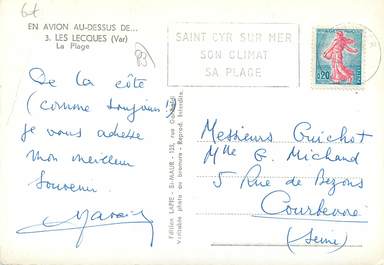 6f
EN AVION AU-DESSUS DE...
3. LES LECQUES (Var)
La Plage
SAINT CYR SUR MER
SON CLIMAT
SA PLAGE
0,20
De la côte
(comme toujours !)
je vous adresse
mon meilleur
souvenir.
Édition LAPIE - St-MAUR - 123, rue
Véritable photo au bromure - Reprod. interdite.
Messieurs Guichot
Mlle G. Michaud
5 Rue de Bezons
Courbevoie
(Seine)